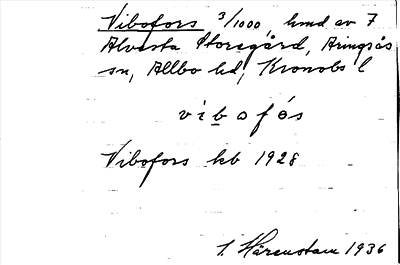 Vibofors 3/1000, hmd av 7
Alvesta Storegård, Aringsås
sn, Allbo hd, Kronobs l
vibofòs
Vibofors kb 1928
S. Härenstam 1936